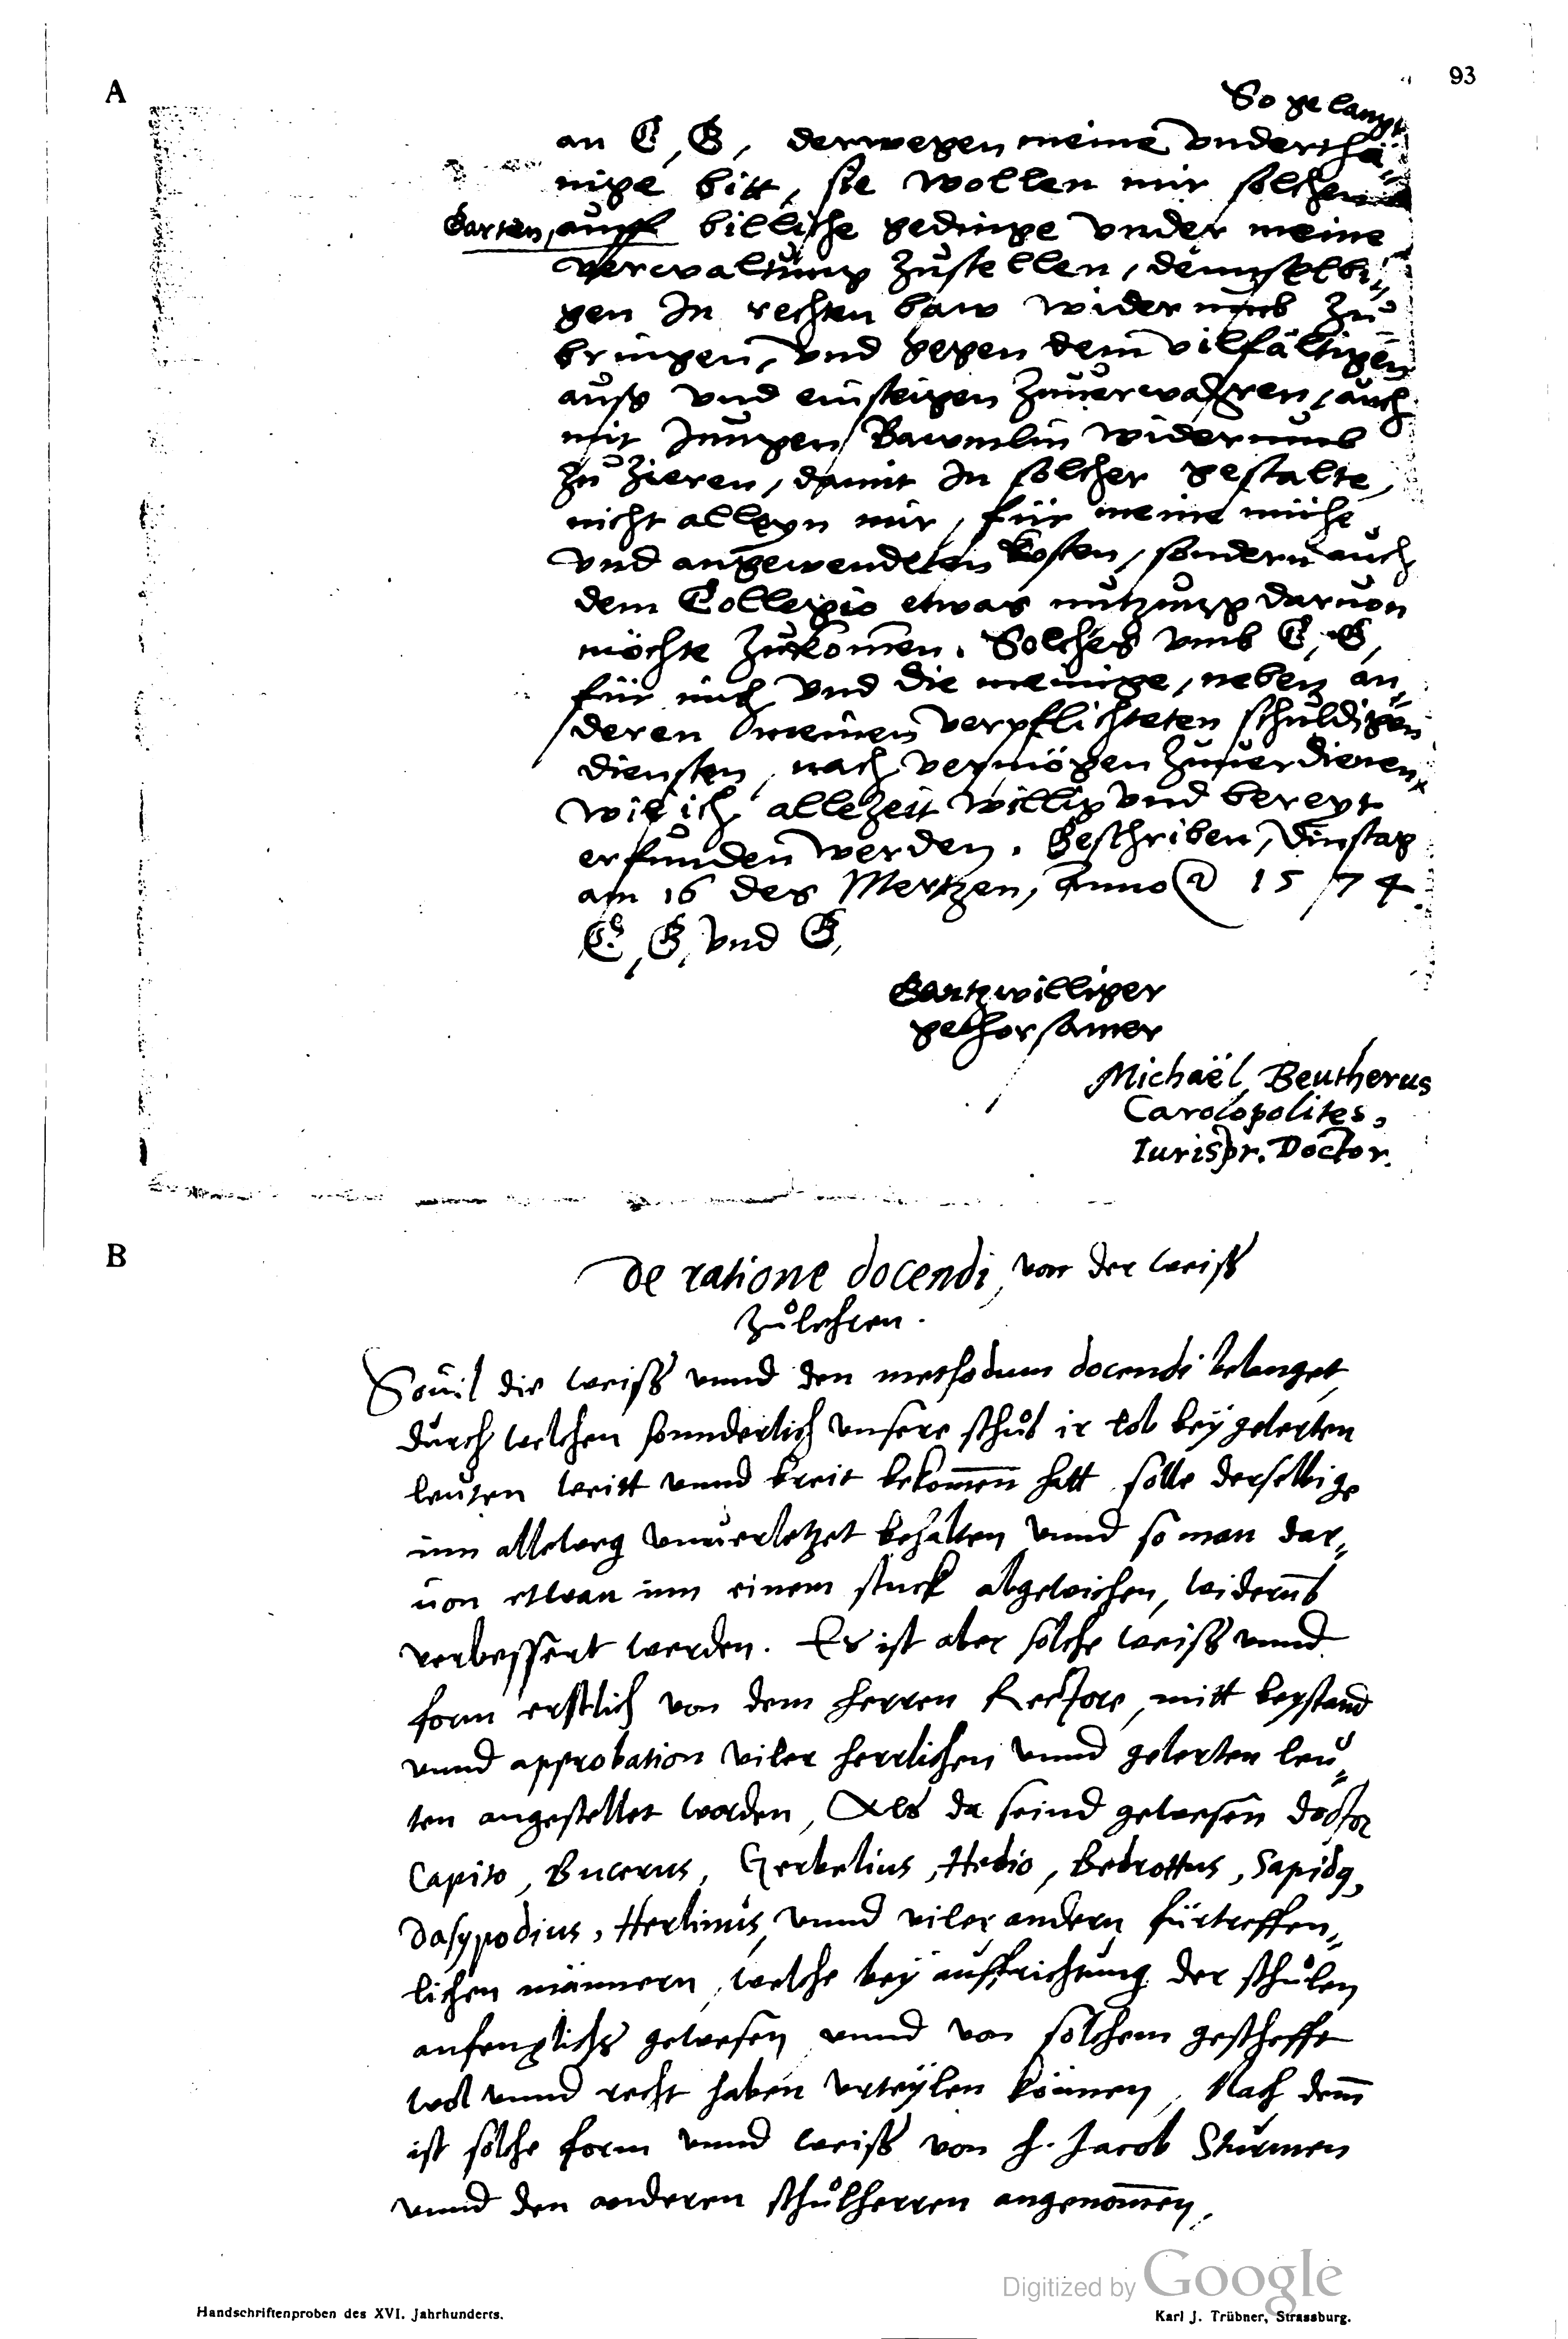 A
93
So gelangt
an E, G, derwegen meine vnderthä=
nige bitt, sie wollen mir solchen
Garten, auff billiche gedinge vnder meine
verwaltung zůstellen, demselbi=
gen In rechten baw widerumb zů=
bringen, vnd gegen dem vilfältigen
auß vnd einsteigen zuuerwahren, auch
mit Jungen Bawmlin widerumb
zů zieren, damit In solcher gestalte,
nicht alleyn mir, für meine mühe
vnd angewendeten kosten, sondern auch
dem Collegio etwas nutzung daruon
möchte zůkom̄en. Solches vmb E, G,
für mich vnd die meinige, neben an=
deren meinen verpflichteten schuldigen
diensten, nach vermögen zuuerdienen
will ich allezeit willig vnd bereyt
erfunden werden. Geschriben, Dinstag
am 16 des Mertzen, Anno 1574.
E, G, vnd G,
Gantzwilliger
gehorsamer
Michaël Beutherus
Carolopolites,
Iurispr. Doctor.
B
De ratione docendi, von der weiß
zůlehren.
Souil die weiß vnnd den methodum docendi belanget,
durch welchen sonnderlich vnsere schůl ir lob bey gelerten
leuten weitt vnnd breit bekom̄en hatt, solle derselbige
inn alleweg vnuerletzet behalten vnnd so man dar=
uon etwan inn einem stuck abgewichen, widerumb
verbessert werden. Es ist aber solche weiß vnnd
form erstlich von dem herren Rectore, mitt beystand
vnnd approbation viler herrlichen vnnd gelerten leu=
ten angestellet worden, Als da seind gewesen doctor
Capito, Bucerus, Gerbelius, Hedio, Bedrottus, Sapidus,
Dasypodius, Herlinus, vnnd viler andern fürtreffen=
lichen männern, welche bey auffrichtung der schůlen
anfenglichs gewesen vnnd von solchem gescheffte
wol vnnd recht haben vrteylen können, Nach dem̄
ist solche form vnnd weiß von h. Jacob Sturmen
vnnd den anderen schůlherren angenom̄en,
Digitized by Google
Handschriftenproben des XVI. Jahrhunderts.
Karl J. Trübner, Strassburg.